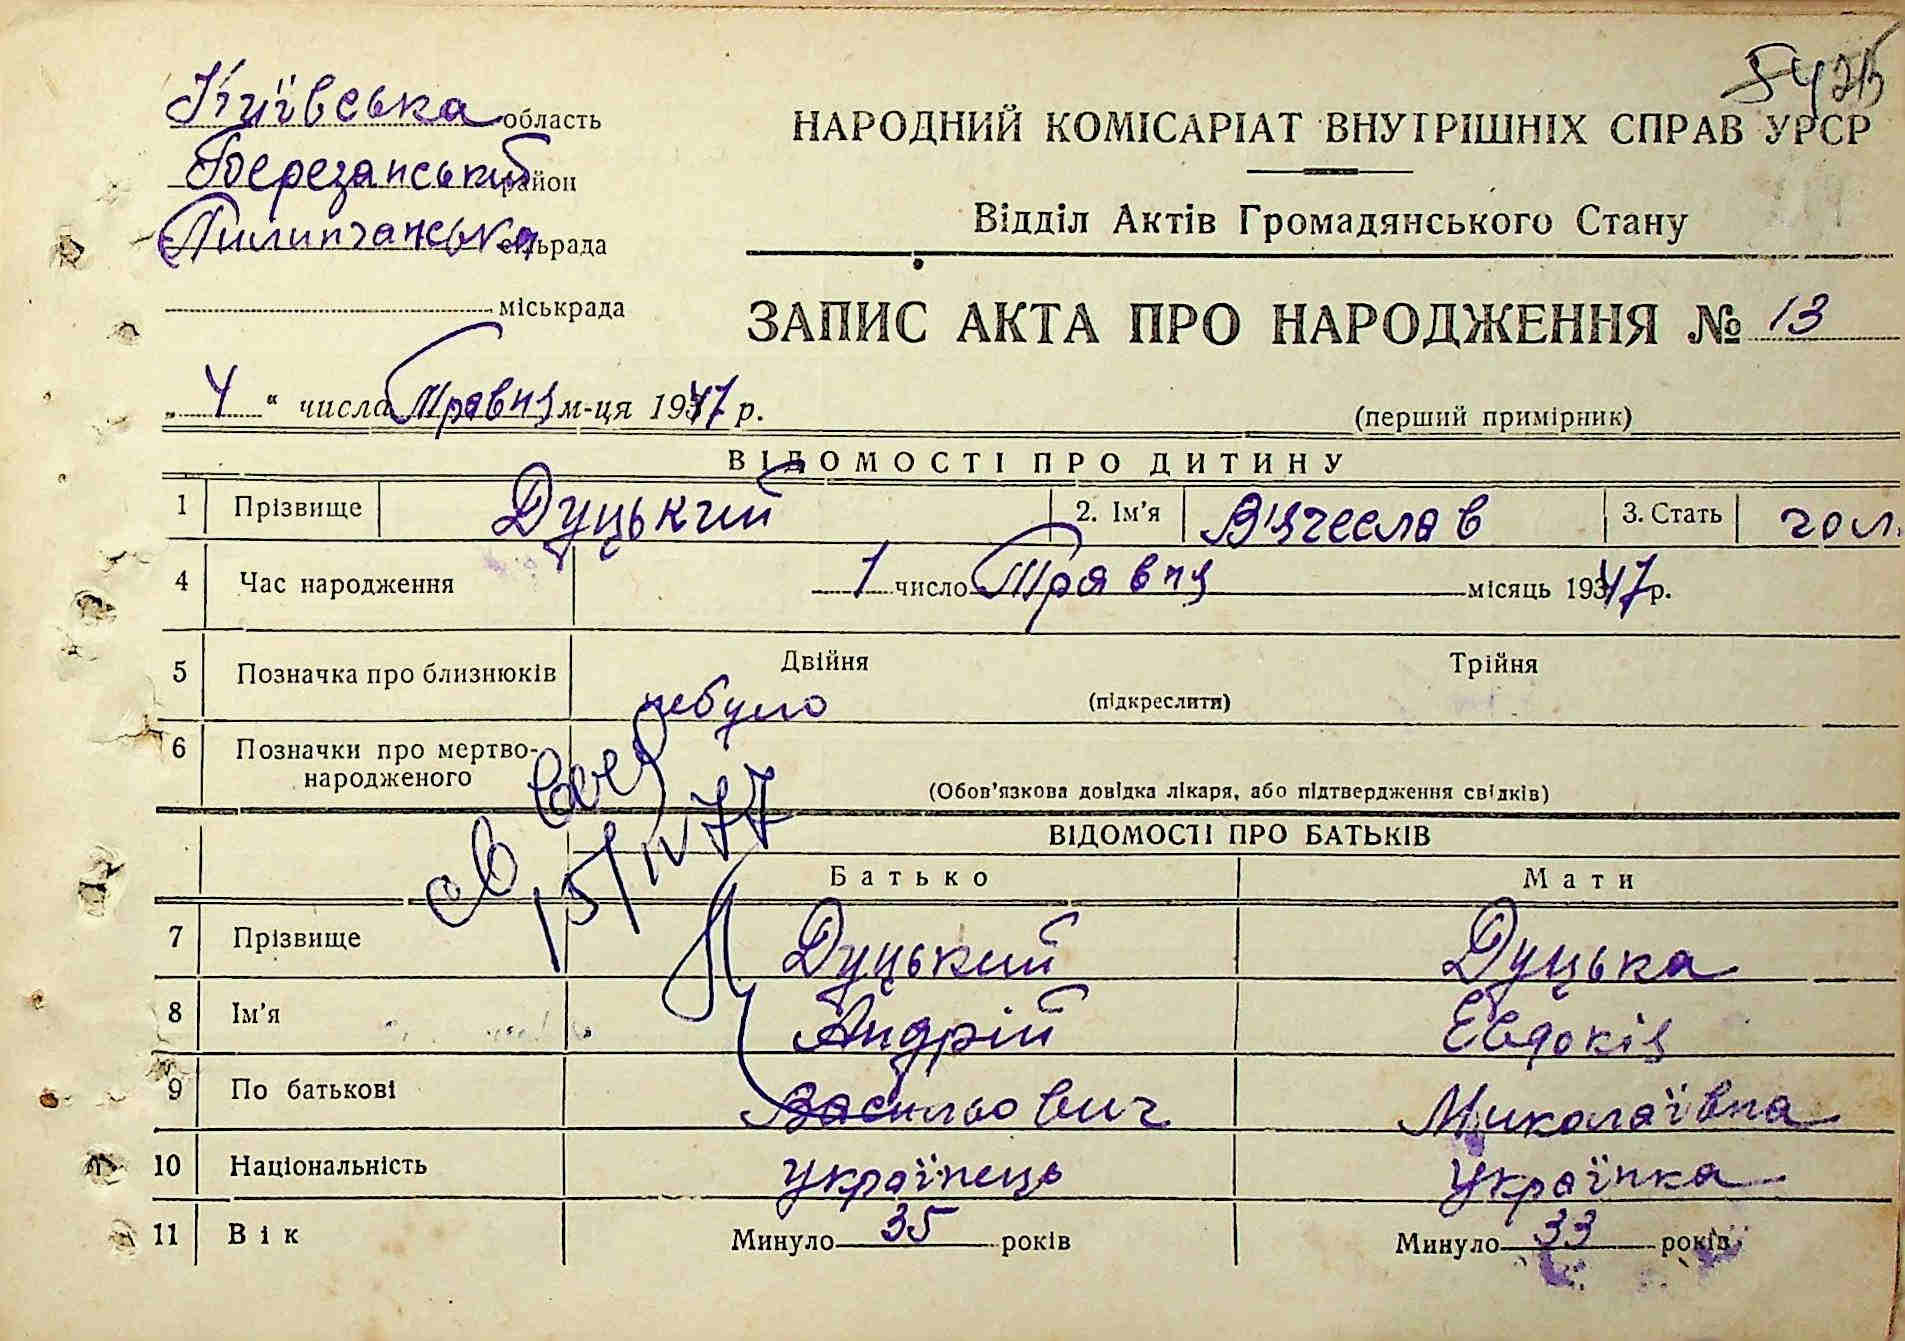 Київська область
Березанський район
Пилипчанська сільрада
міськрада
НАРОДНИЙ КОМІСАРІАТ ВНУТРІШНІХ СПРАВ УРСР
Відділ Актів Громадянського Стану
ЗАПИС АКТА ПРО НАРОДЖЕННЯ № 13
„ 4 “ числа Травня м-ця 1947 р.
(перший примірник)
ВІДОМОСТІ ПРО ДИТИНУ
1 Прізвище Дуцький 2. Ім'я Вячеслав 3. Стать чол.
4 Час народження 1 число Травня місяць 1947 р.
5 Позначка про близнюків Двійня Трійня
небуло (підкреслити)
6 Позначки про мертво-
народженого
(Обов'язкова довідка лікаря, або підтвердження свідків)
15/IV 77
ВІДОМОСТІ ПРО БАТЬКІВ
Батько Мати
7 Прізвище Дуцький Дуцька
8 Ім'я Андрій Евдокія
9 По батькові Васильович Миколаївна
10 Національність українець Українка
11 Вік Минуло 35 років Минуло 33 років